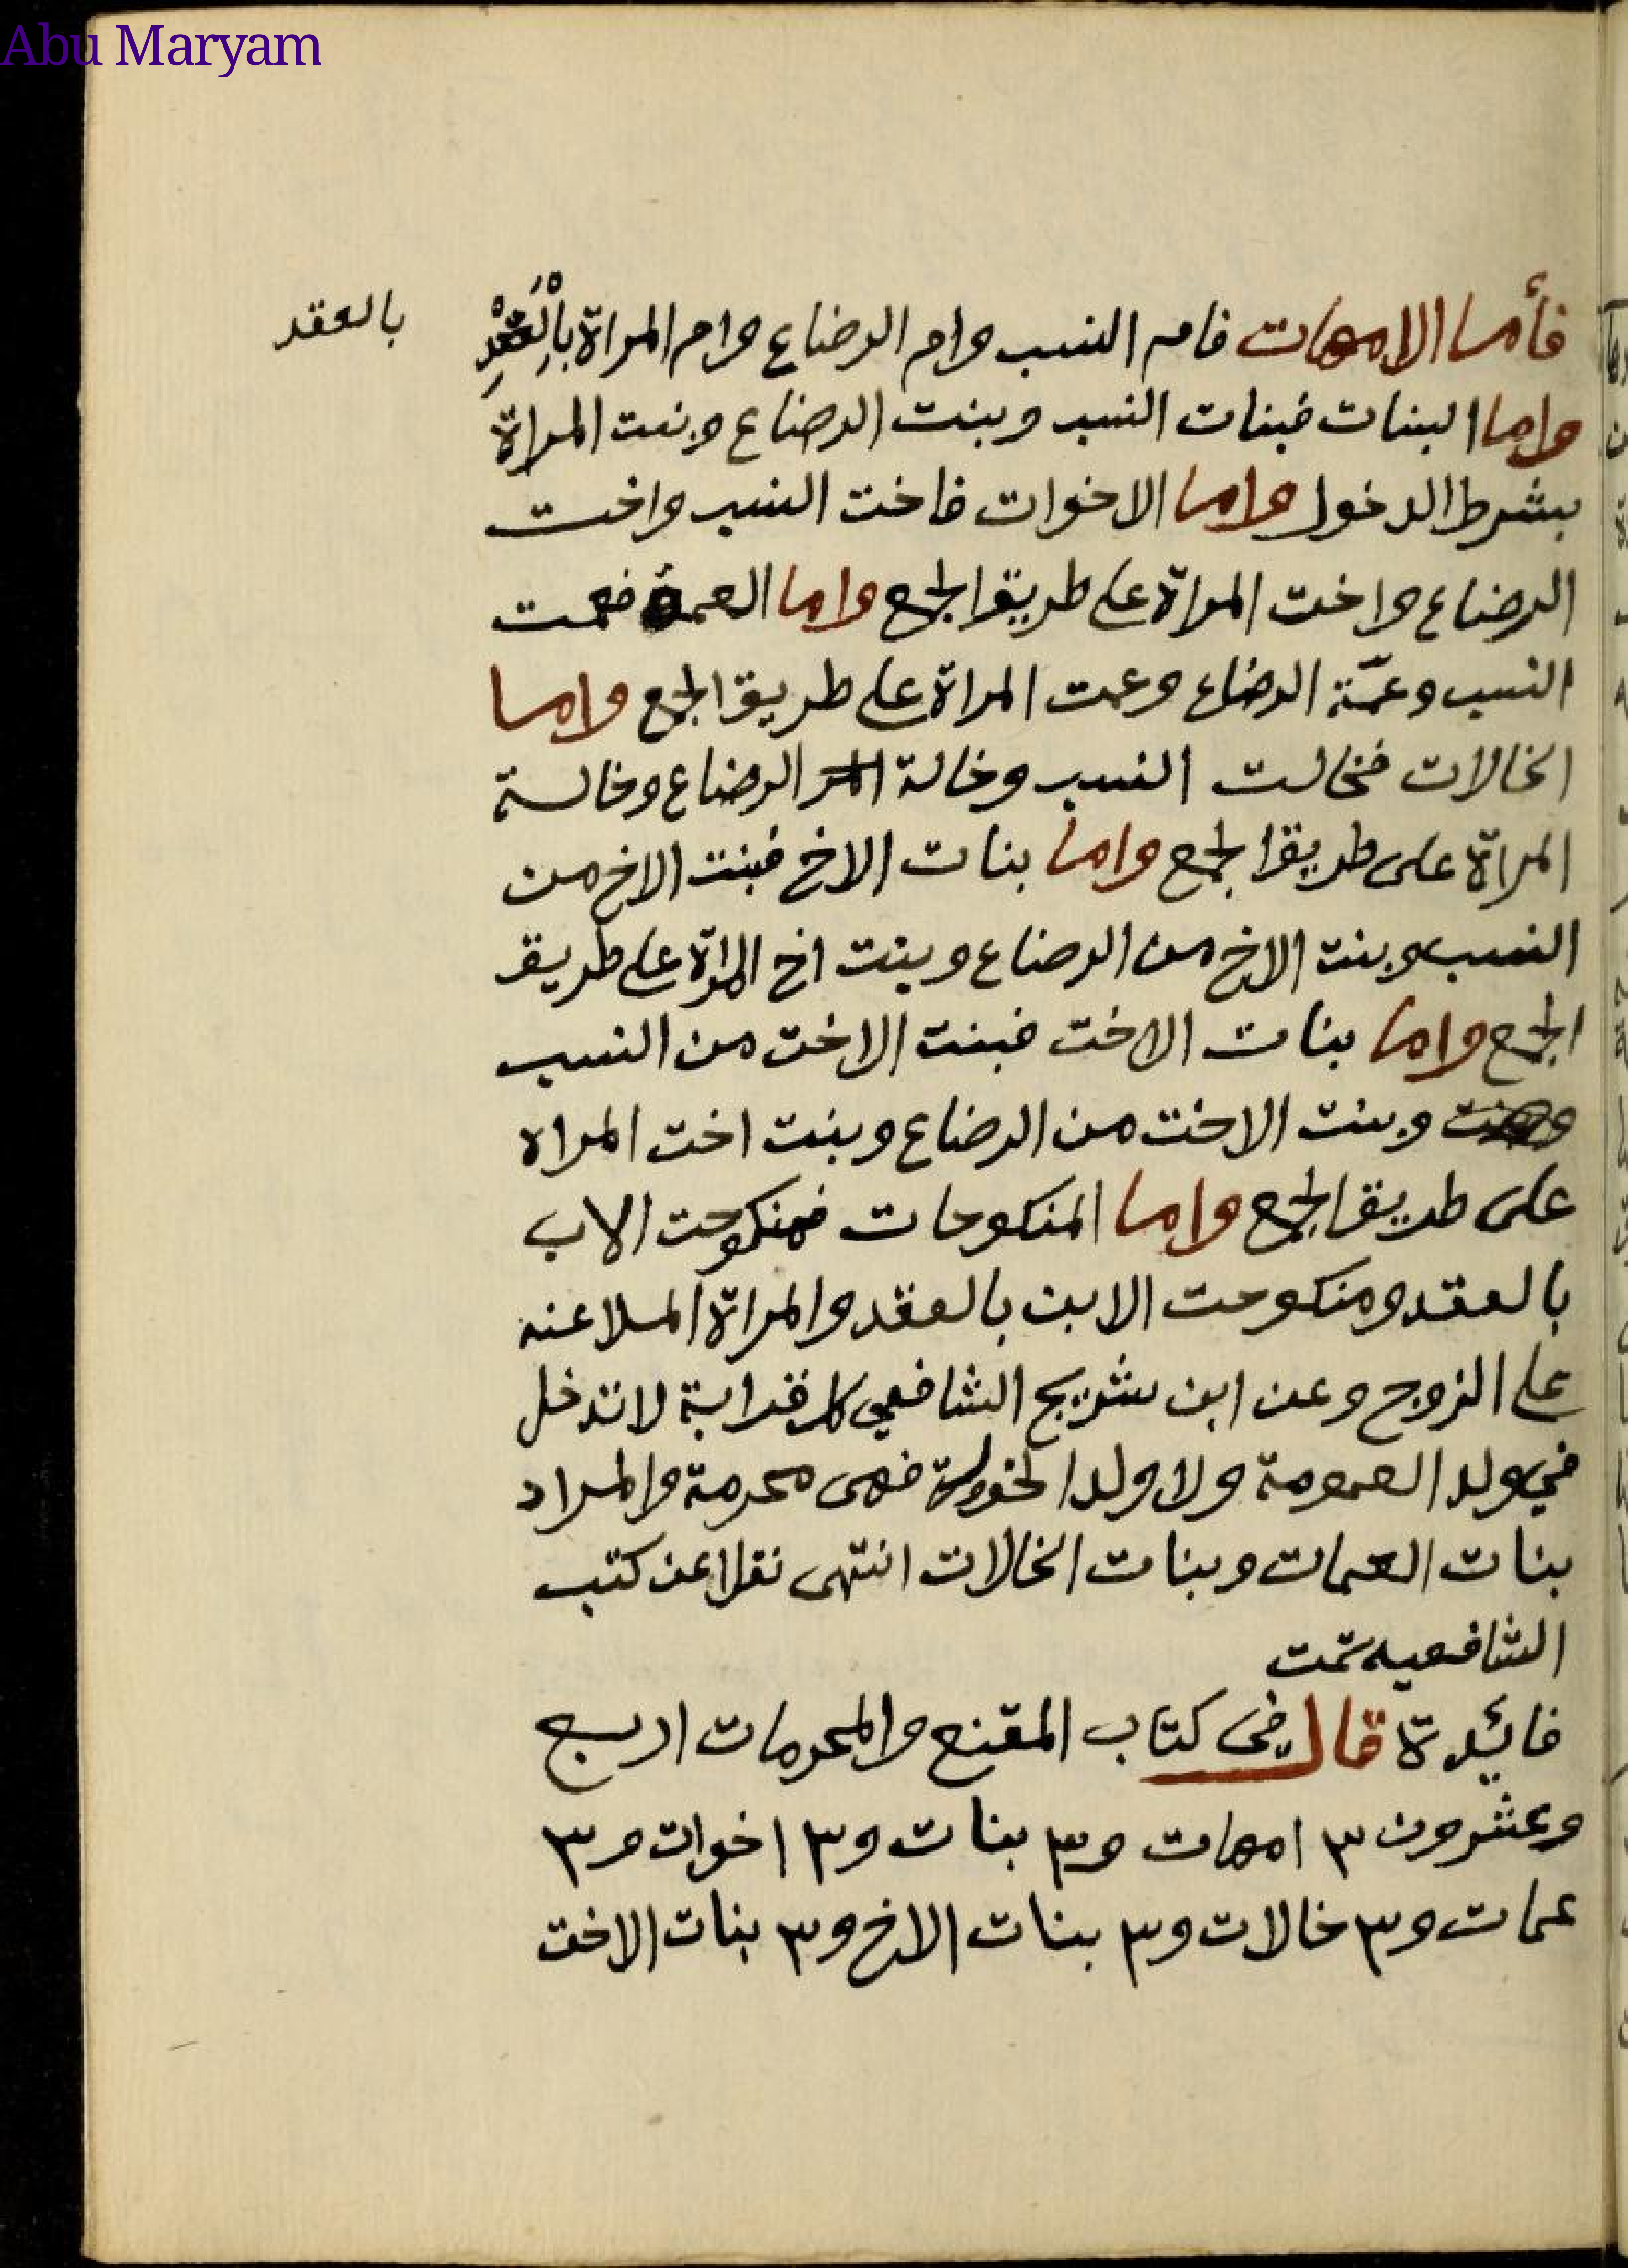 Abu Maryam
فأما الامهات فام النسب وام الرضاع وام المراة بِالْعَقْدِ
بالعقد
واما البنات فبنات النسب وبنت الرضاع وبنت المراة
بشرط الدخول واما الاخوات فاخت النسب واخت
الرضاع واخت المراة على طريق الجمع واما العمة فعمت
النسب وعمّة الرضاع وعمت المراة على طريق الجمع واما
الخالات فخالت النسب وخالة الرضاع وخالة
المراة على طريق الجمع واما بنات الاخ فبنت الاخ من
النسب وبنت الاخ من الرضاع وبنت اخ المراة على طريق
الجمع واما بنات الاخت فبنت الاخت من النسب
وبنت الاخت من الرضاع وبنت اخت المراه
على طريق الجمع واما المنكوحات فمنكوحت الاب
بالعقد ومنكوحت الابن بالعقد والمراة الملاعنه
على الزوج وعن ابن شريح الشافعي كل قرابة لا تدخل
في ولد العمومة ولا ولد الخوولة فهى محرمة والمراد
بنات العمات وبنات الخالات انتهى نقلا عن كتب
الشافعيه تمت
فائدة قال فى كتاب المقنع والمحرمات اربع
وعشرون ٣ امهات و٣ بنات و٣ اخوات و٣
عمات و٣ خالات و٣ بنات الاخ و٣ بنات الاخت